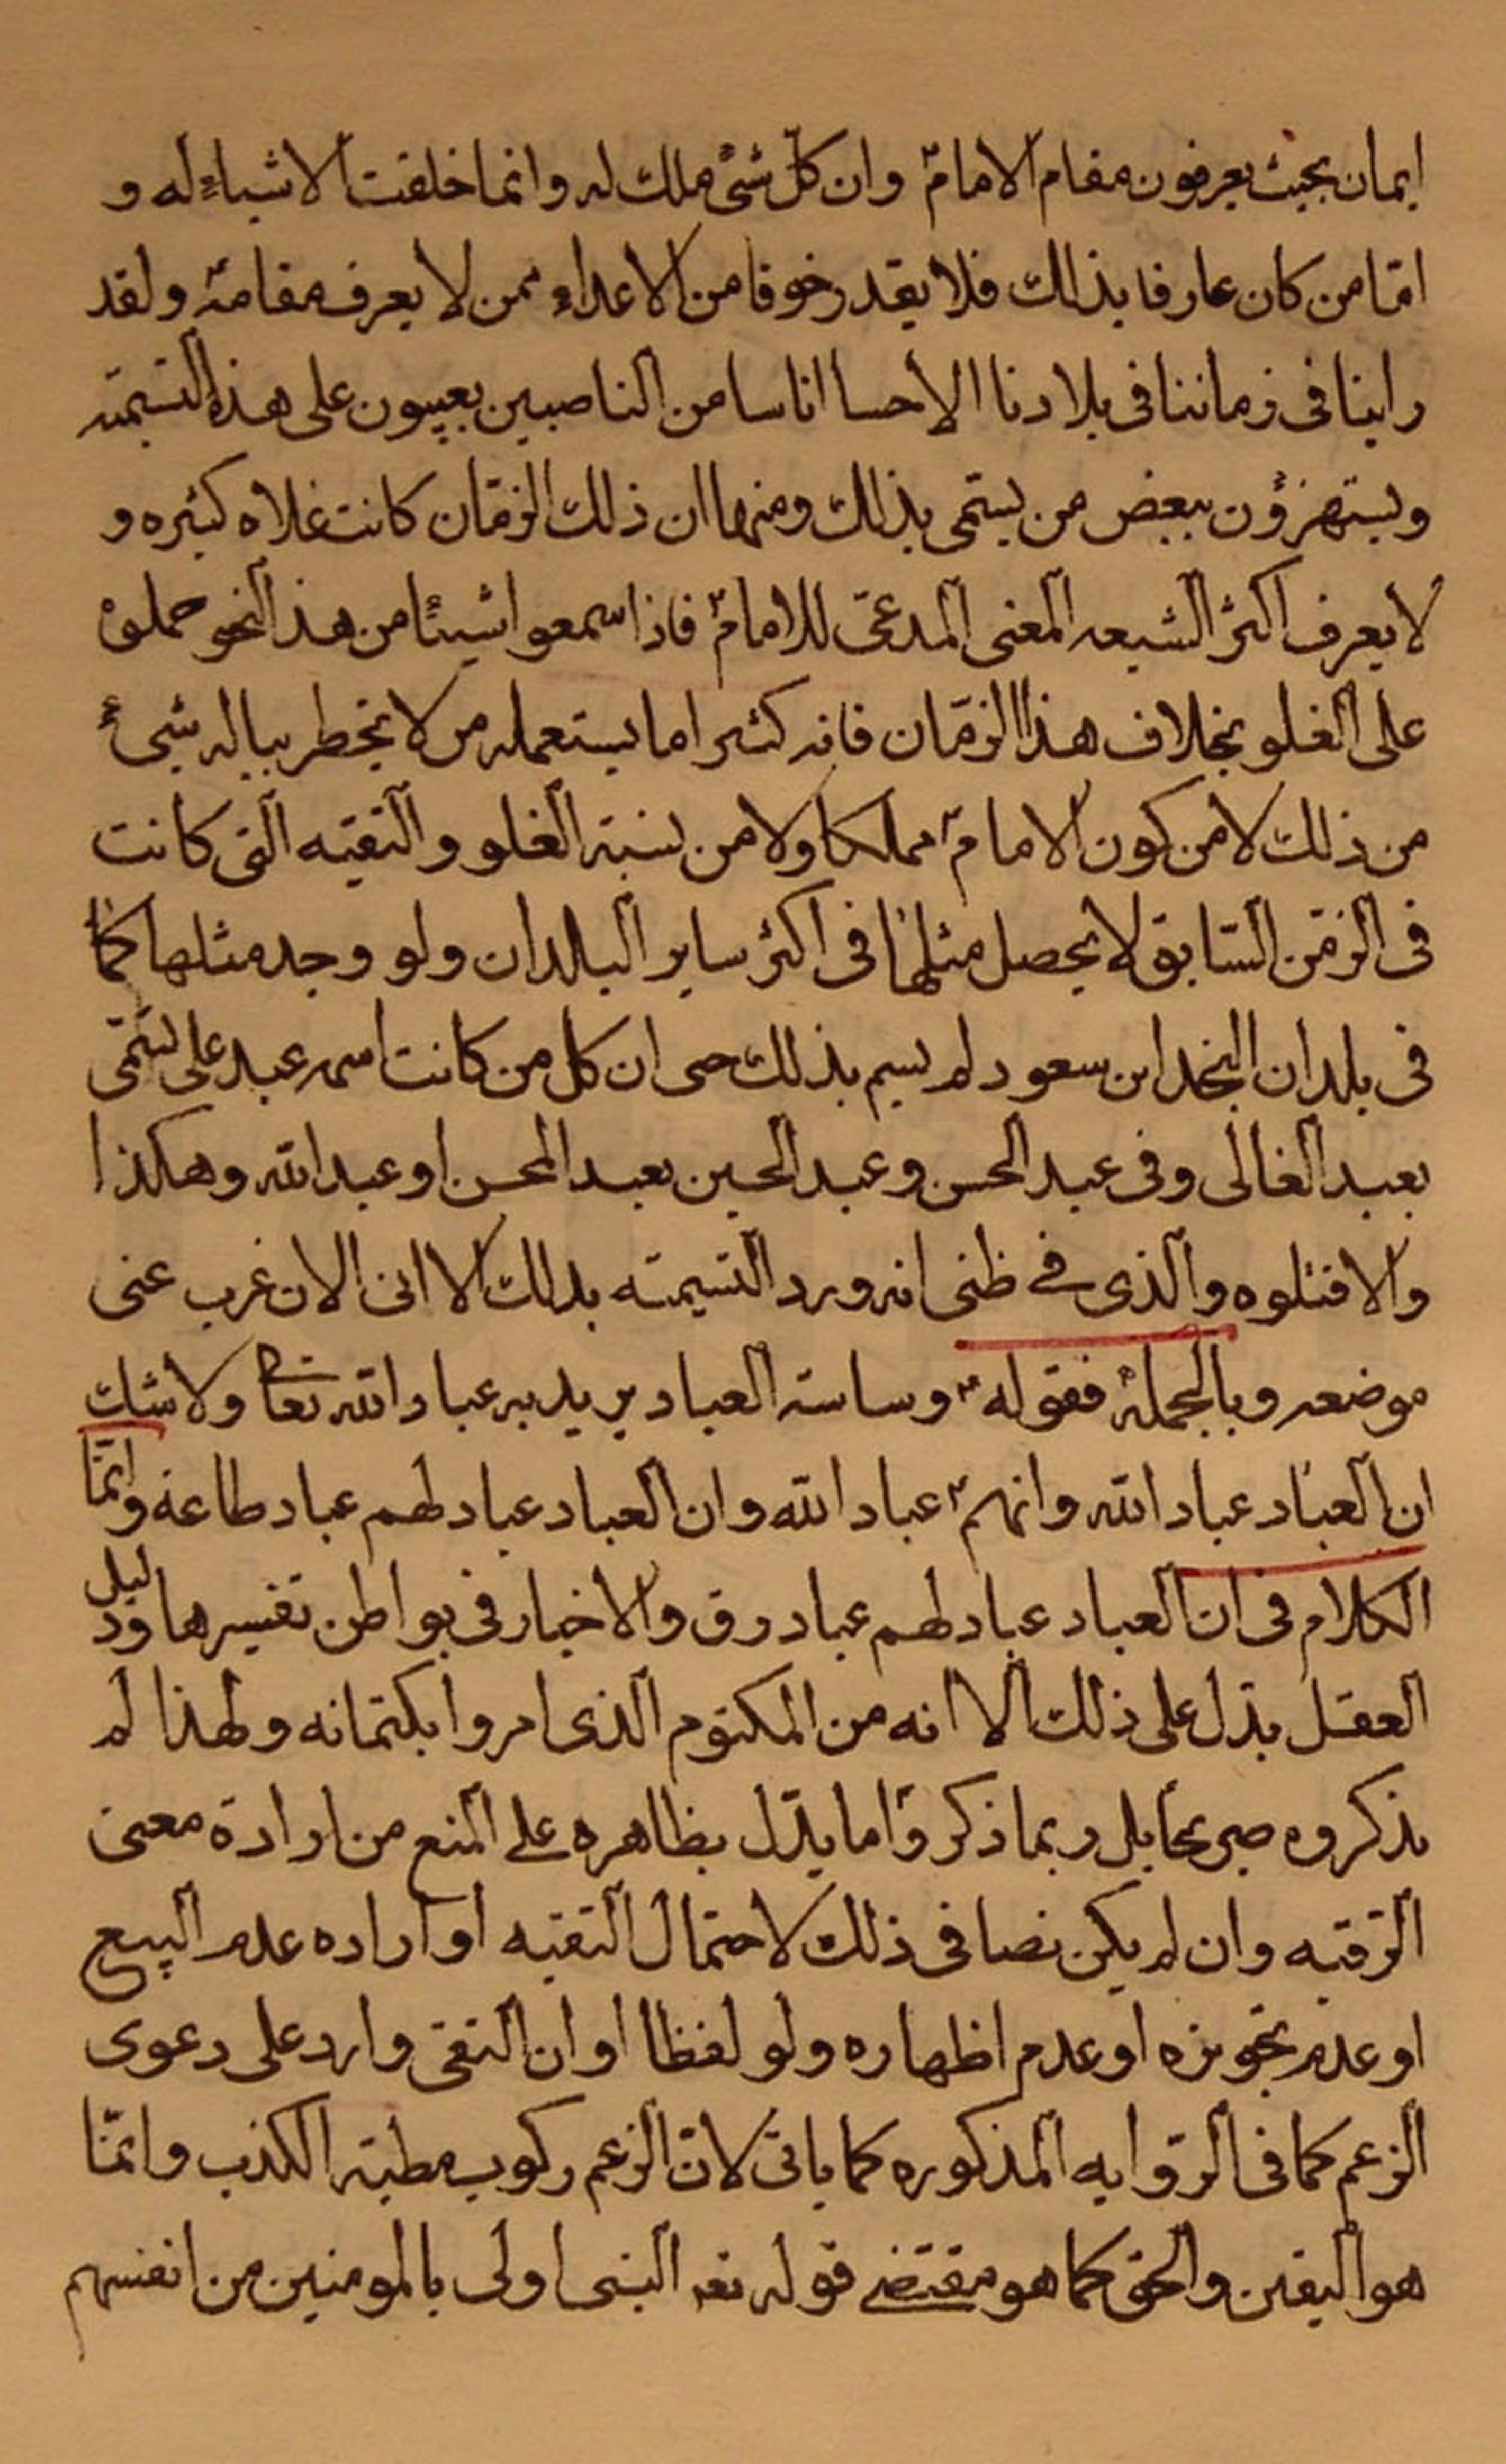 ايمان بحيث يعرفون مقام الامامؑ وان كلّ شئ ملك له وانما خلقت الاشياء له و
امّا من كان عارفا بذلك فلا يقدر خوفا من الاعداء ممن لا يعرف مقامهؑ ولقد
راينا فى زماننا فى بلادنا الاحسا اناسا من الناصبين يعيبون على هذه التسمية
ويستهزؤن ببعض من يسمّى بذلك ومنها ان ذلك الزمّان كانت غلاه كثيره و
لا يعرف اكثر الشيعه المعنى المدعىّ للامامؑ فاذا سمعوا شيئًا من هذ النحو حملوه
على الغلو بخلاف هذا الزمّان فانه كثيرا ما يستعمله من لا يخطر بباله شئ
من ذلك لا من كون الامامؑ مملكا ولا من نسبة الغلو والتقيه التى كانت
فى الزمّن السّابق لا يحصل مثلها فى اكثر ساير البلدان ولو وجد مثلها كما
فى بلدان النجد ابن سعود لم يسم بذلك حى ان كل من كانت اسمه عبد على يسمّى
بعبد الغالى وفى عبد الحسن وعبد الحسين بعبد المحسن او عبد الله وهكذا
والا قتلوه والذى فے ظنى انه ورد التسيمته بدلك الا انى الان غرب عنى
موضعه وبالجملة فقولهؑ وساسة العباد يريد به عباد الله تعا ولا شك
ان العباد عباد الله وانهمؑ عباد الله وان العباد عباد لهم عباد طاعة وانمّا
الكلام فى ان العباد عباد لهم عباد رق والاخبار فى بواطن تفسيرها ودليل
العقل يدّل على ذلك الا انه من المكتوم الذى امروا بكتمانه ولهذا لم
يذكروه صريحا بل ربما ذكروا ما يدّل بظاهره علے المنع من ارادة معنى
الرّقيه وان لم يكن نصا فى ذلك لاحتمال التقيه او اراده عدم البيع
او عدم تجويزه او عدم اظهاره ولو لفظا او ان النفى وارد على دعوى
الزعم كما فى الرّوايه المذكوره كما ياتى لانّ الزعم ركوب مطية الكذب وانمّا
هو اليقين والحق كما هو مقتضے قوله تعہ النبى اولى بالمومنين من انفسهم